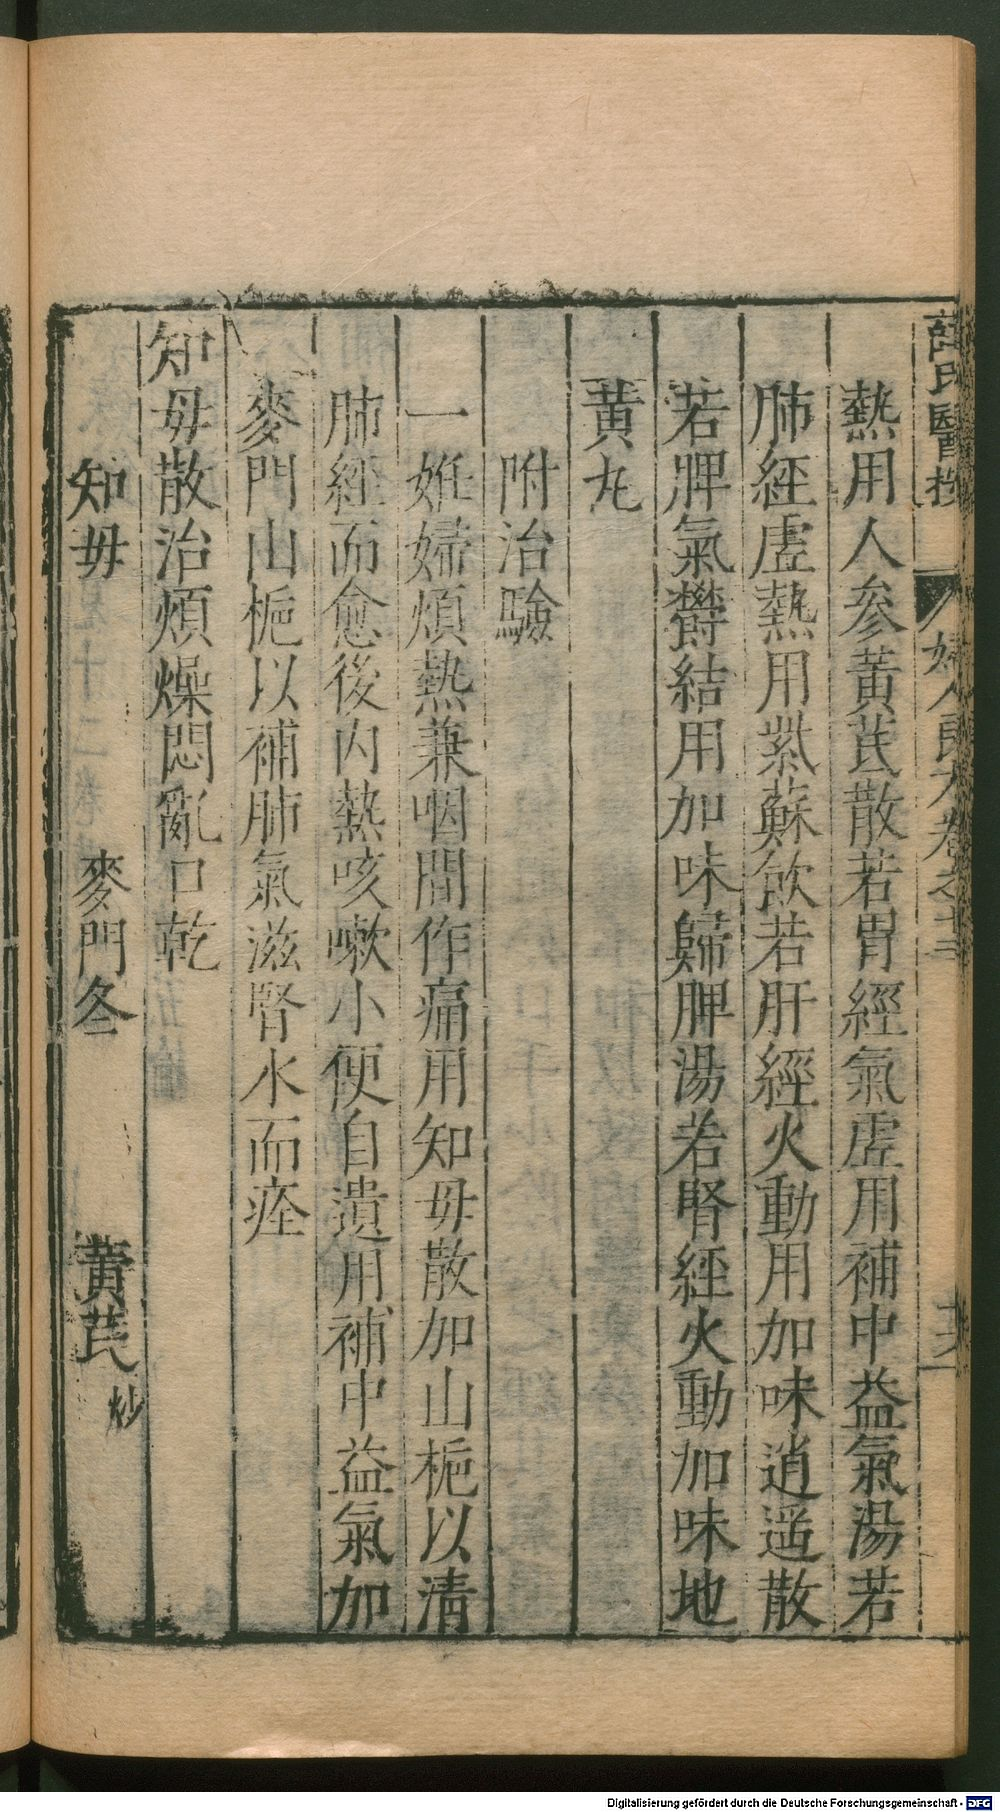 薛氏醫按 婦人良方卷之十三
熱用人參黃芪散若胃經氣虛用補中益氣湯若
肺經虛熱用紫蘇飲若肝經火動用加味逍遥散
若脾氣欝結用加味歸脾湯若腎經火動加味地
黃丸
附治驗
一姙婦煩熱兼咽間作痛用知毋散加山梔以清
肺經而愈後内熱咳嗽小便自遺用補中益氣加
麥門山梔以補肺氣滋腎水而痊
知毋散治煩燥悶亂口乾
知毋 麥門冬 黃芪炒
Digitalisierung gefördert durch die Deutsche Forschungsgemeinschaft - DFG